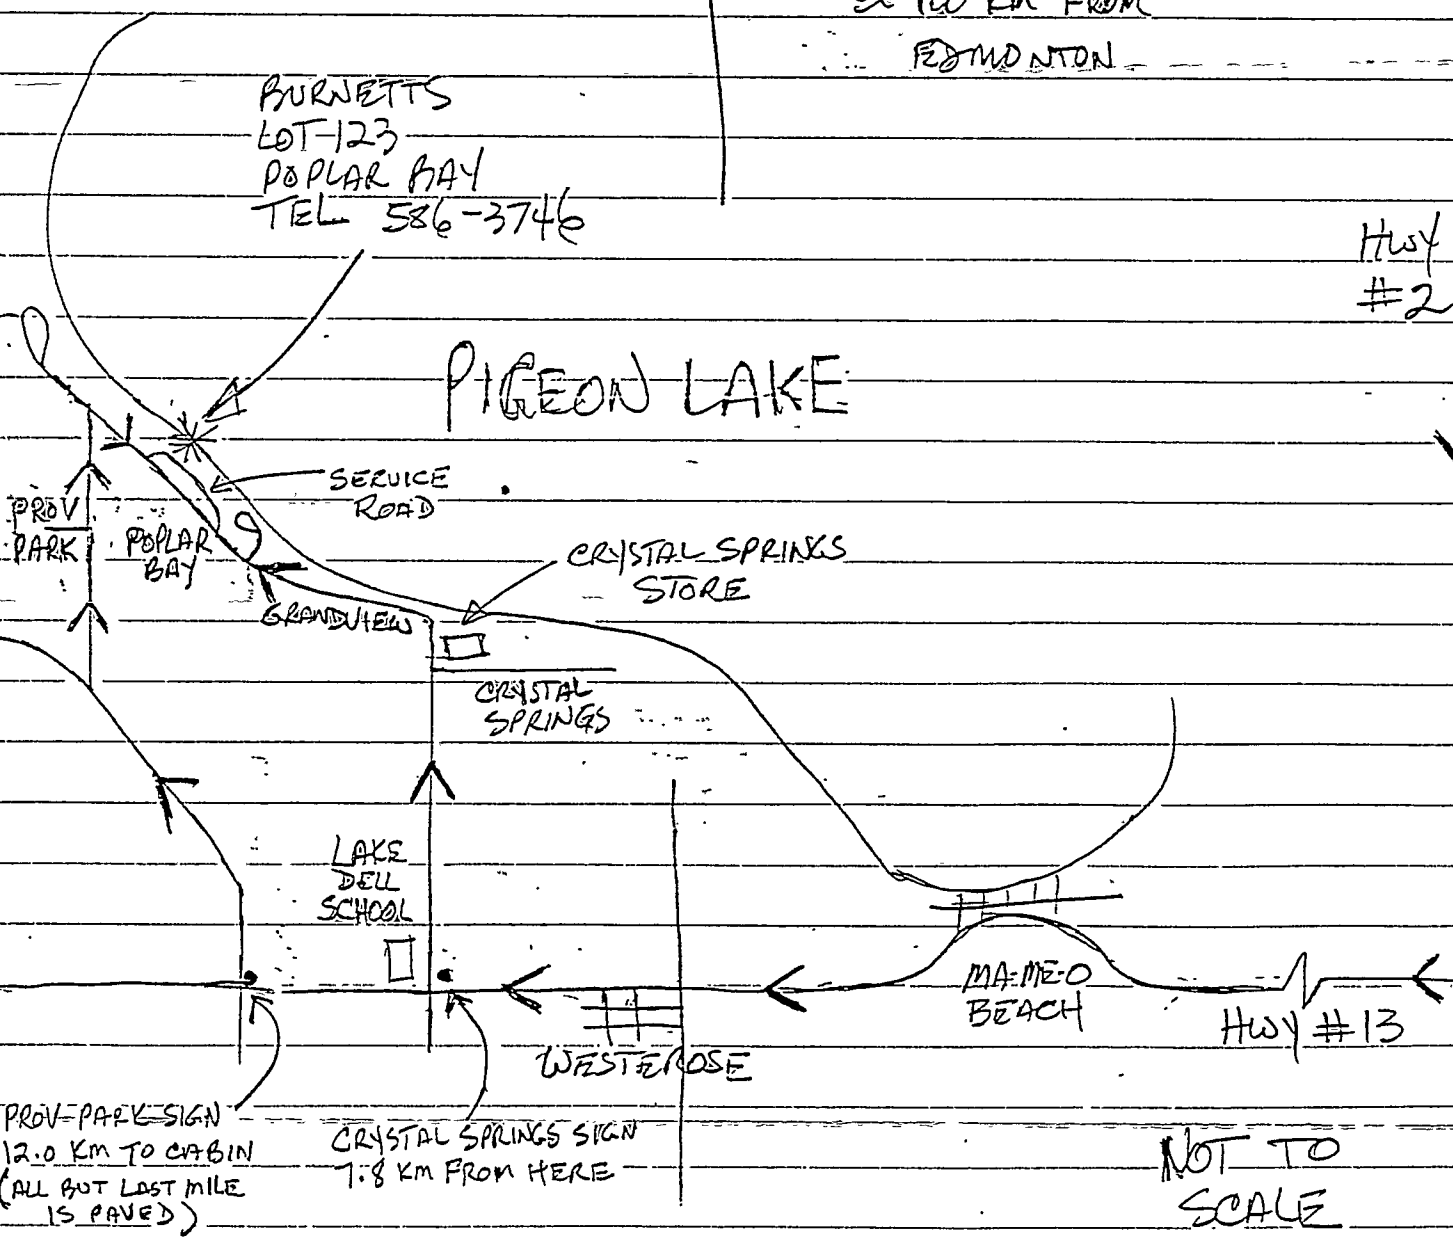 KM FROM
EDMONTON
BURNETTS
LOT-123
POPLAR BAY
TEL 586-3746
HWY
#2
PIGEON LAKE
SERVICE
ROAD
PROV
PARK
POPLAR
BAY
CRYSTAL SPRINGS
STORE
GRANDVIEW
CRYSTAL
SPRINGS
LAKE
DELL
SCHOOL
MA-ME-O
BEACH
HWY #13
WESTEROSE
PROV-PARK-SIGN
12.0 KM TO CABIN
(ALL BUT LAST MILE
IS PAVED)
CRYSTAL SPRINGS SIGN
7.8 KM FROM HERE
NOT TO
SCALE